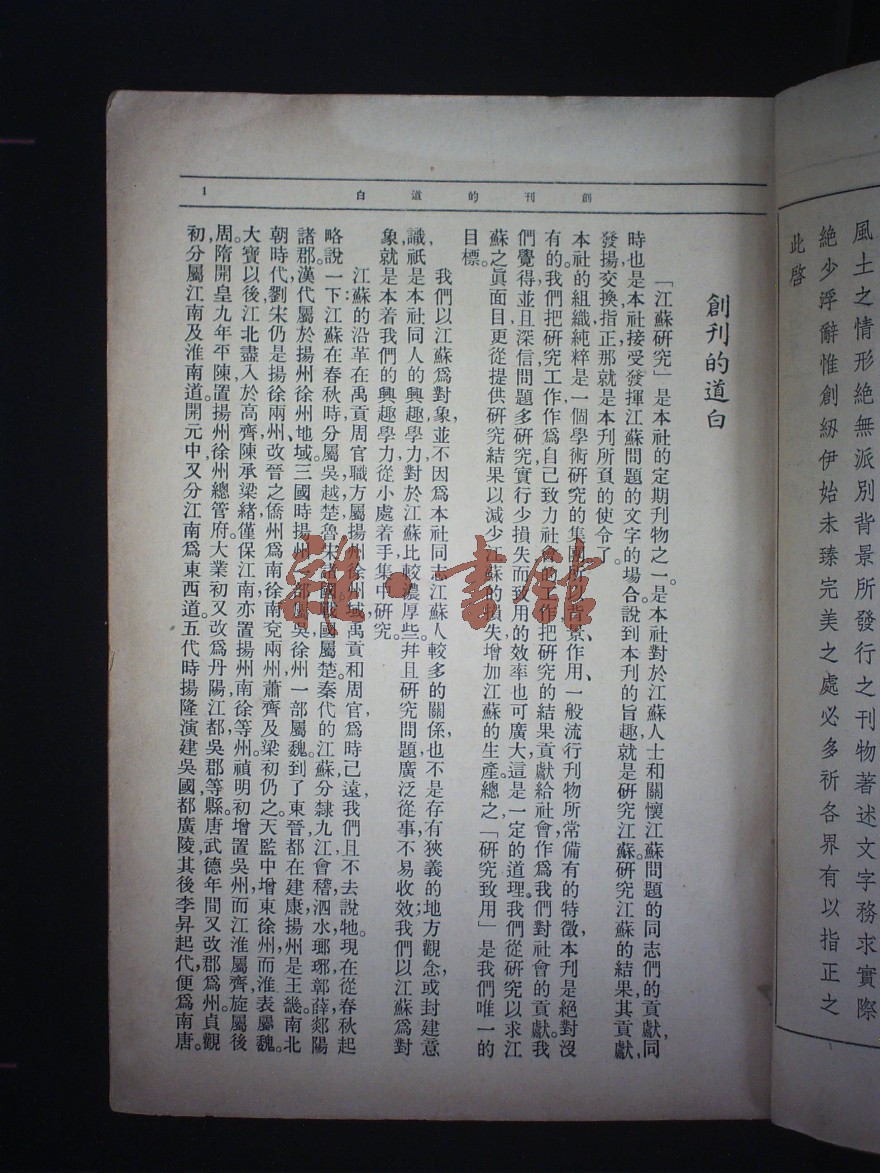 風土之情形絶無派別背景所發行之刊物著述文字務求實際
絶少浮辭惟創刱伊始未臻完美之處必多祈各界有以指正之
此啓
創刊的道白
1
創刊的道白
「江蘇研究」是本社的定期刊物之一。是本社對於江蘇人士和關懷江蘇問題的同志們的貢獻,同
時也是本社接受發揮江蘇問題的文字的場合。說到本刊的旨趣,就是研究江蘇。研究江蘇的結果,其貢獻,
發揚交換指正那就是本刊所負的使令了。
本社的組織純粹是一個學術研究的集團,背景、作用、一般流行刊物所常備有的特徵,本刊是絕對沒
有的。我們把研究工作作為自己致力社會的工作,把研究的結果貢獻給社會作為我們對社會的貢獻。我
們覺得並且深信問題多研究實行少損失而致用的效率也可廣大,這是一定的道理。我們從研究以求江
蘇之眞面目,更從提供研究結果以減少江蘇的損失增加江蘇的生產。總之「研究致用」是我們唯一的
目標。
我們以江蘇為對象,並不因為本社同志江蘇人較多的關係,也不是存有狹義的地方觀念,或封建意
識,祇是本社同人的興趣學力,對於江蘇比較濃厚些。并且研究問題廣泛從事不易收效;我們以江蘇為對
象,就是本着我們的興趣學力從小處着手集中研究。
江蘇的沿革在禹貢周官職方屬揚州徐州域,禹貢和周官為時已遠,我們且不去說牠。現在從春秋起
略說一下:江蘇在春秋時分屬吳越楚魯宋諸國,戰國屬楚。秦代的江蘇分隸九江會稽,泗水瑯琊,鄣薛,郯陽
諸郡。漢代屬於揚州徐州地域。三國時揚州一部屬吳,徐州一部屬魏。到了東晉都在建康,揚州是王畿。南北
朝時代,劉宋仍是揚徐兩州,改晉之僑州為南徐南兗兩州,蕭齊及梁初仍之。天監中增東徐州,而淮表屬魏。
大寶以後,江北盡入於高齊,陳承梁緒,僅保江南,亦置揚州南徐等州。禎明初增置吳州,而江淮屬齊,旋屬後
周。隋開皇九年平陳,置揚州徐州總管府。大業初又改為丹陽江都吳郡等縣。唐武德年間又改郡為州,貞觀
初分屬江南及淮南道。開元中,又分江南為東西道。五代時揚隆演建吳國,都廣陵,其後李昇起代,便為南唐。
雜·書館